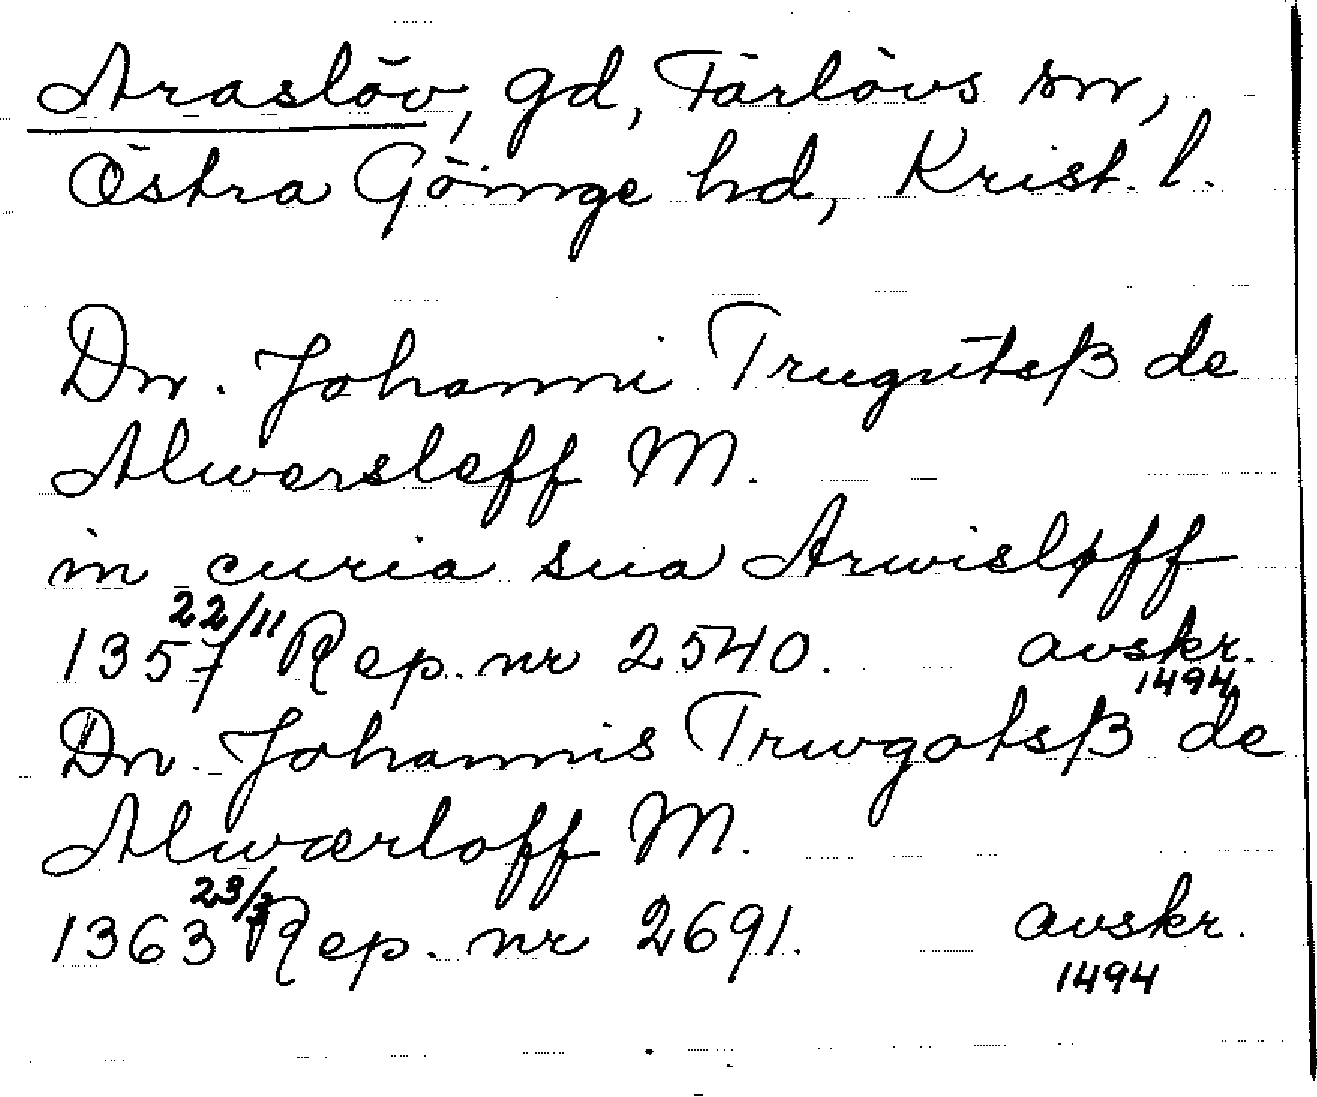 Araslöv, gd, Färlövs sn,
Östra Göinge hd, Krist. l.
Dn. Johanni Trugutsß de
Alwersleff M.
in curia sua Arwisløff
1357 22/11 Rep. nr 2540. avskr. 1494
Dn. Johannis Trwgotsß de
Alwærloff M.
1363 23/3 Rep. nr 2691. avskr.
1494